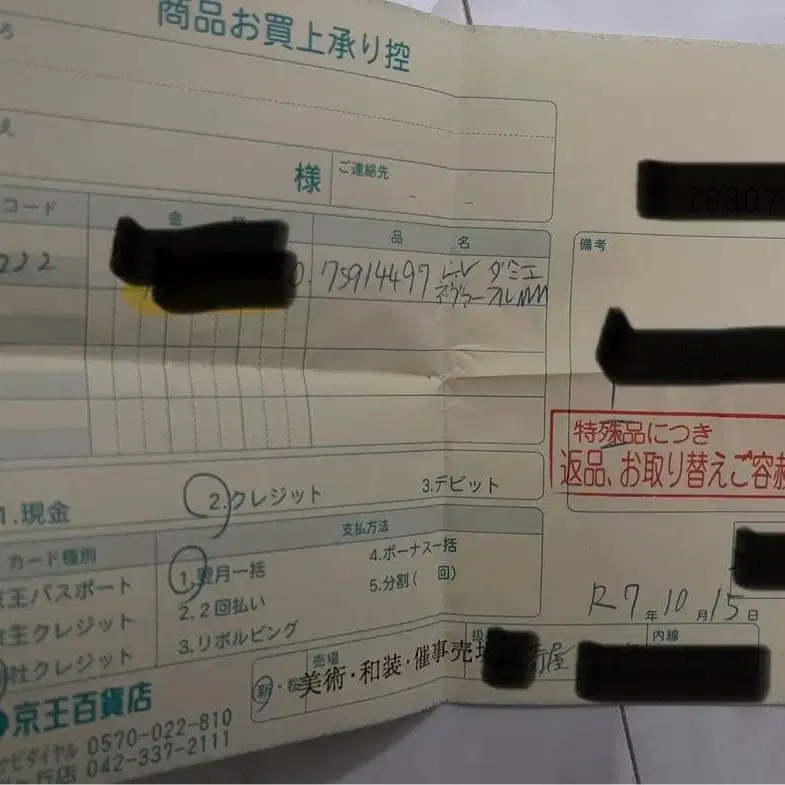 商品お買上承り控
様
ご連絡先
コード
金
品 名
備考
222
0.
75914497 L.V ダミエ
ネヴァーフルMM
78307
特殊品につき
返品、お取り替えご容赦
1.現金
2.クレジット
3.デビット
カード種別
支払方法
京王パスポート
京王クレジット
他社クレジット
1.翌月一括
2.2回払い
3.リボルビング
4.ボーナス一括
5.分割( 回)
R7年10月15日
新・桜
売場
美術・和装・催事売場
扱
内線
京王百貨店
ナビダイヤル 0570-022-810
丘店 042-337-2111